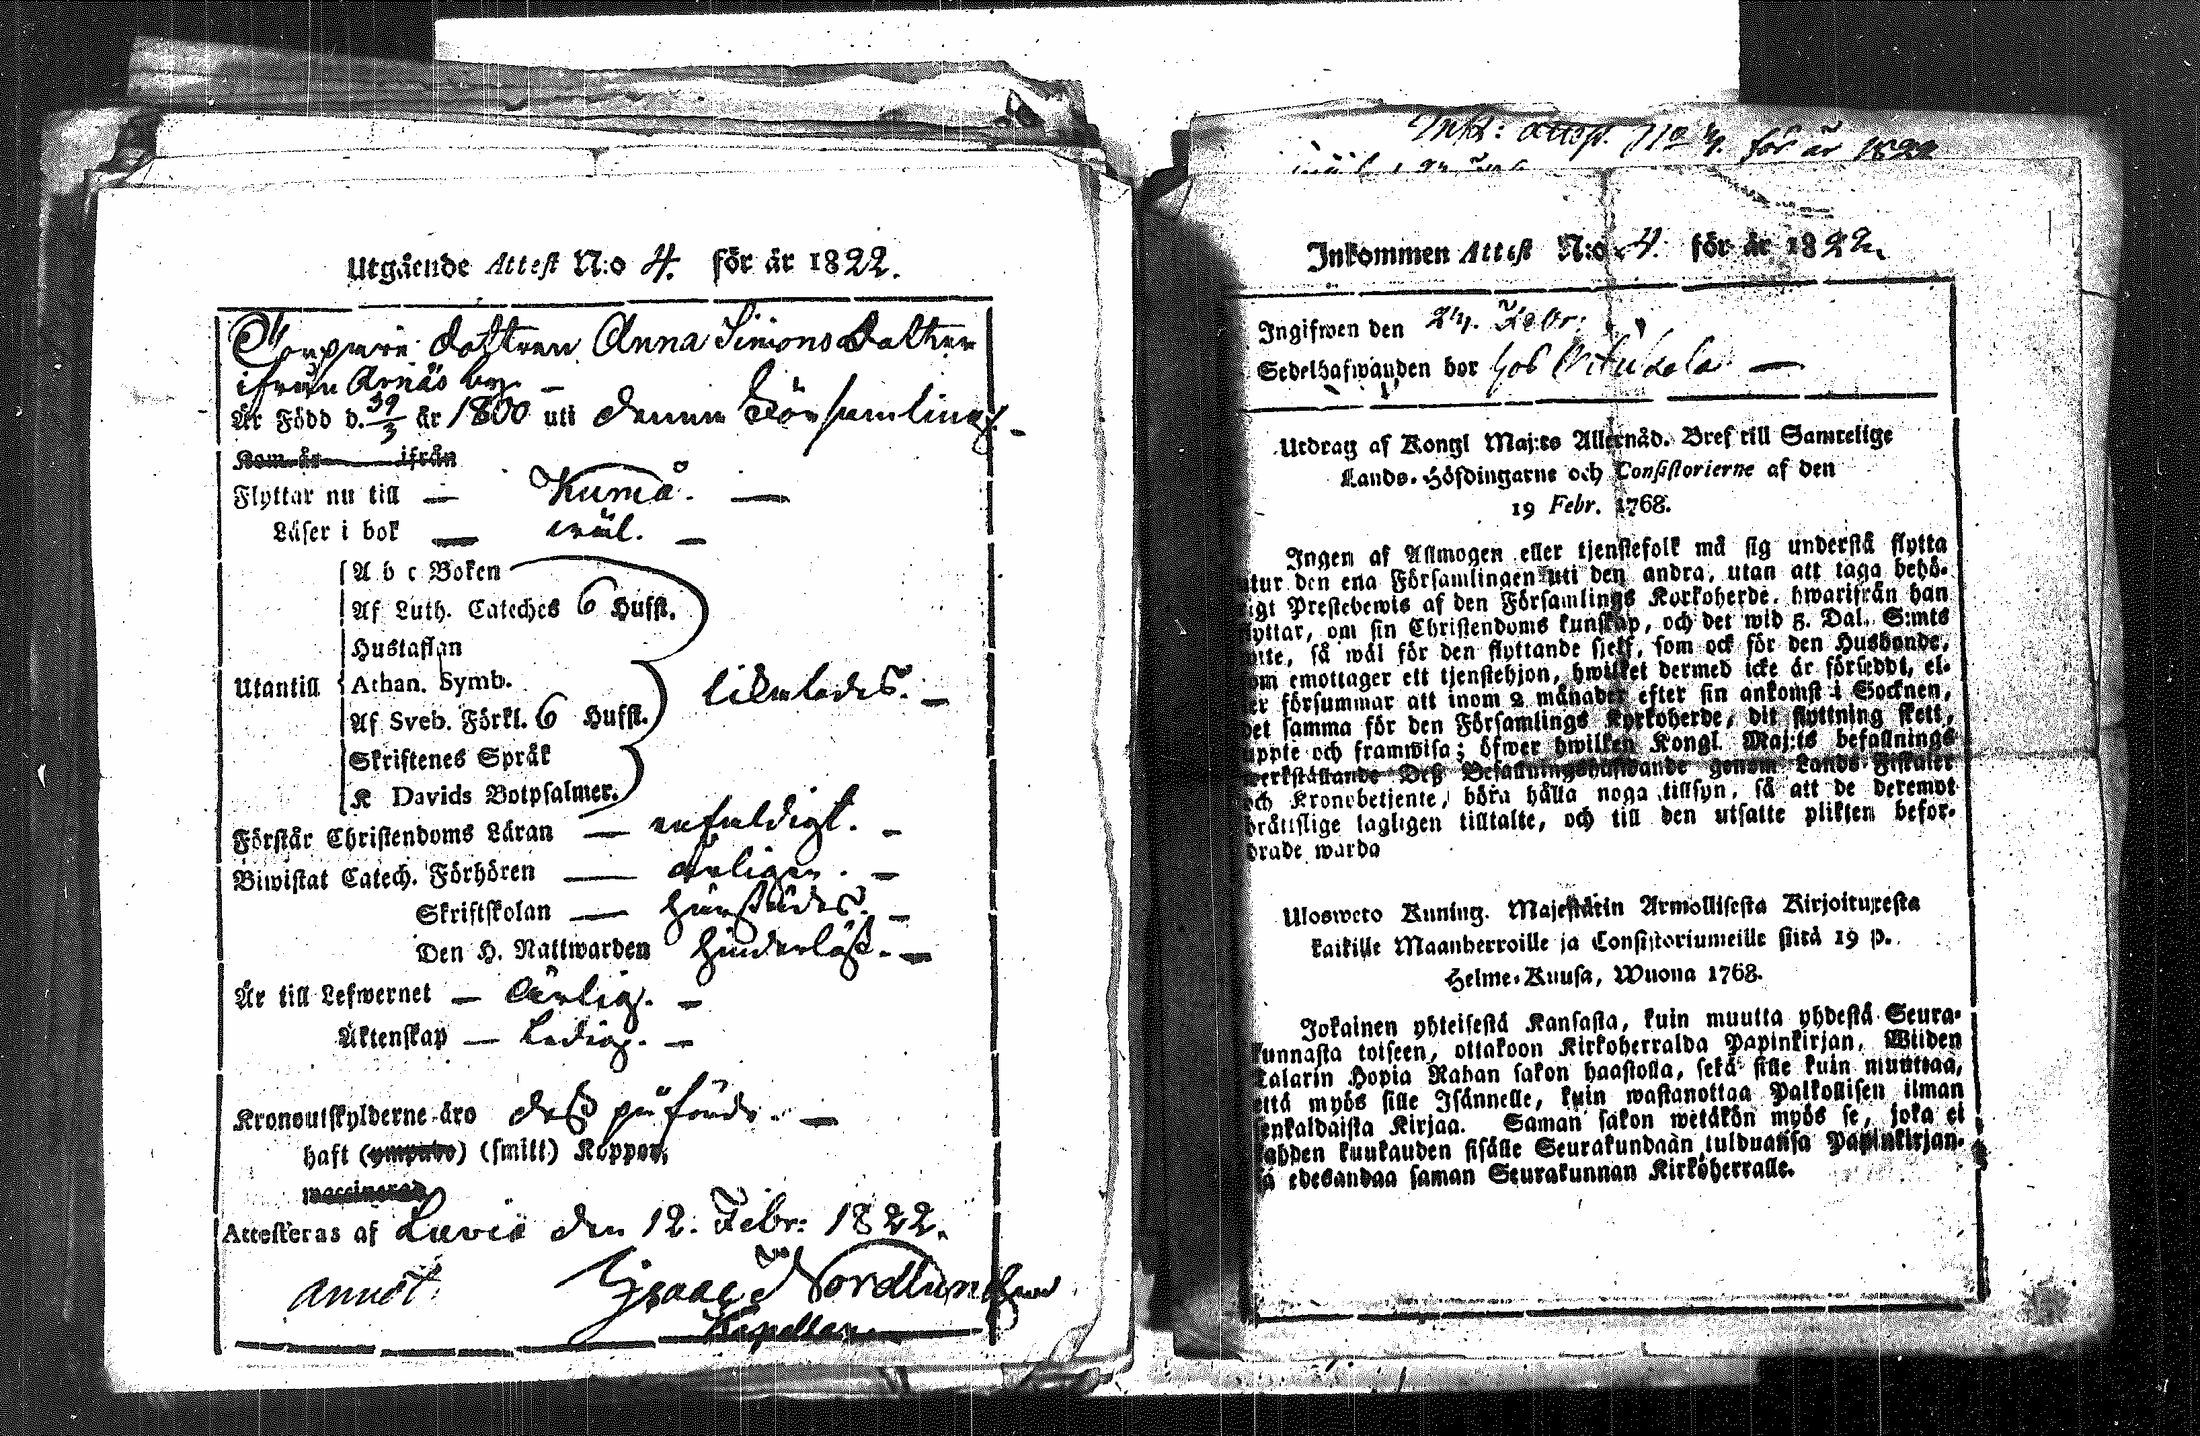 Utgående Attest N:o 4. för år 1822.
dottren Anna Simons dotter
ifrån Arnäs by. —
Är Född d. 29/3 år 1800 uti denna Församling. —
Kom år ifrån
Flyttar nu till — Kumå. —
Läser i bok — wäl. —
A b c Boken
Af Luth. Cateches 6 Hufst.
Hustaflan
Utantill Athan. Symb. likaledes. —
Af Sveb. Förkl. 6 Hufst.
Skriftenes Språk
K Davids Botpsalmer.
Förstår Christendoms Läran — enfaldigt. —
Biwistat Catech. Förhören — årligen. —
Skriftskolan — —
Den H. Nattwarden hinderlöst. —
Är till Lefwernet — Ärlig. —
Äktenskap — Ledig. —
Kronoutskylderne äro —
haft (ympade) (smitt) Koppor,
waccinerad
Attesteras af Luvia den 12. Febr: 1822.
Isaac Nordlund
Kapellan.
Ink: attest. No 4. för år 1822
Inkommen Attest N:o 4. för år 1822.
Ingifwen den 24. Febr:
Sedelhafwanden bor hos —
Utdrag af Kongl Maj:ts Allernåd. Bref till Samtelige
Lands-Höfdingarne och Consistorierne af den
19 Febr. 1768.
Ingen af Allmogen eller tjenstefolk må sig understå flytta
utur den ena Församlingen uti den andra, utan att taga behö-
rigt Prestebewis af den Församlings Kyrkoherde, hwarifrån han
flyttar, om sin Christendoms kunskap, och det wid 5. Dal. S:mts
wite, så wäl för den flyttande sjelf, som ock för den Husbonde,
som emottager ett tjenstehjon, hwilket dermed icke är försedt, el-
ler försummar att inom 2 månader efter sin ankomst i Socknen,
det samma för den Församlings Kyrkoherde, dit flyttning skett,
uppte och framwisa; öfwer hwilken Kongl. Maj:ts befallnings
werkställande Deß Befallningshafwande genom Lands-Fiskaler
och Kronobetjente, böra hålla noga tillsyn, så att de deremot
brättslige lagligen tilltalte, och till den utsatte plikten befor-
drade warda
Ulosweto Kuning. Majestätin Armollisesta Kirjoituxesta
kaikille Maanherroille ja Consistoriumeille siitä 19 p.
Helme-Kuusa, Wuona 1768.
Jokainen yhteisestä Kansasta, kuin muutta yhdestä Seura-
kunnasta toiseen, ottakoon Kirkoherralda Papinkirjan, Wiiden
Talarin Hopia Rahan sakon haastolla, sekä sille kuin muuttaa,
että myös sille Isännelle, kuin wastanottaa Palkollisen ilman
senkaldaista Kirjaa. Saman sakon wetäkön myös se, joka ei
kahden kuukauden sisälle Seurakundaan tulduansa Papinkirjan-
sa edesandaa saman Seurakunnan Kirkoherralle.